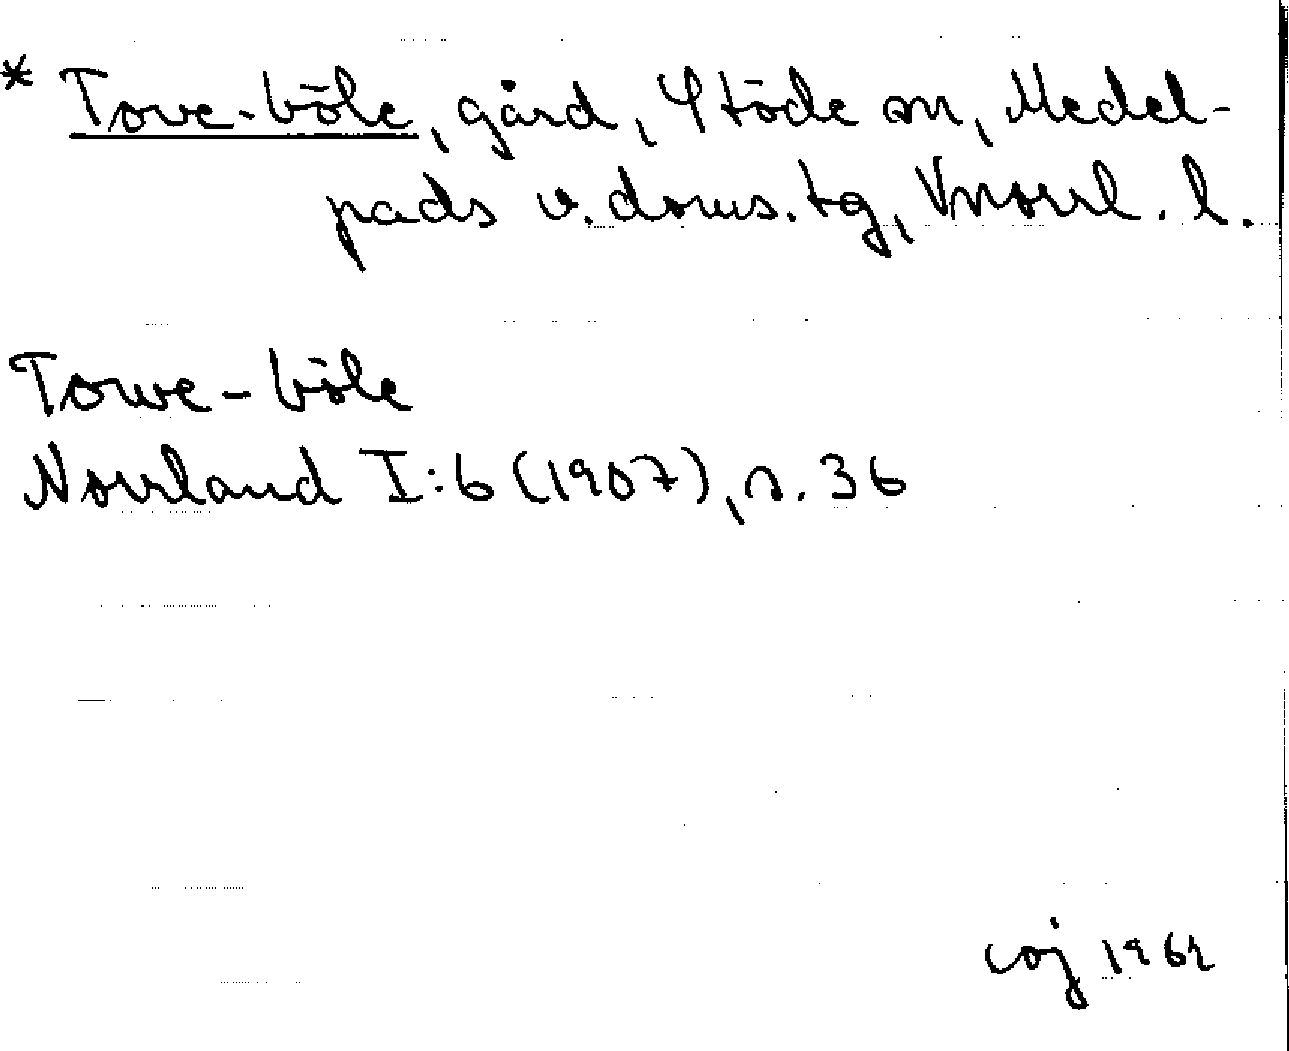 * Tove-böle, gård, Stöde sn, Medel-
pads v. doms. tg, Vnorrl. l.
Towe-böle
Norrland I:6 (1907), s. 36
coj 1961